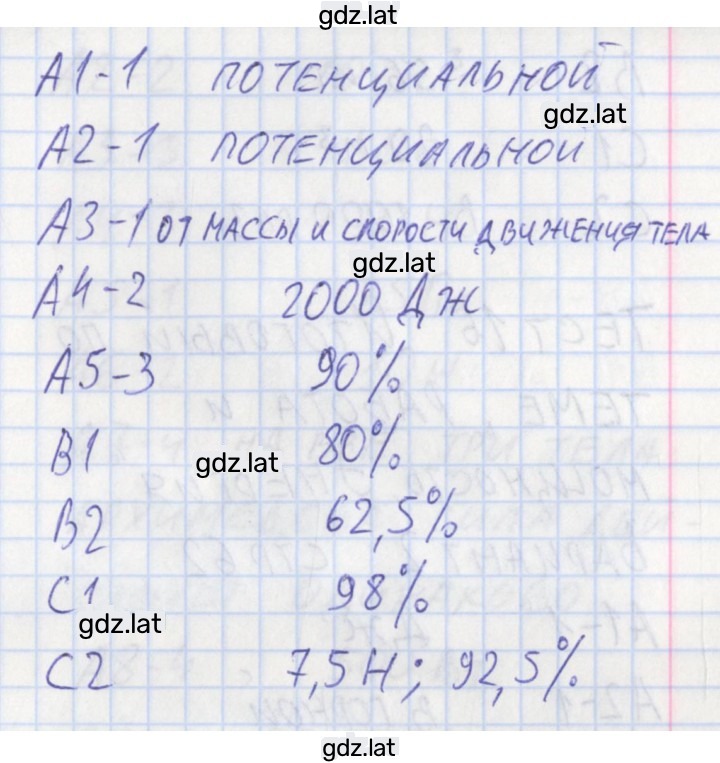 gdz.lat
А1-1 ПОТЕНЦИАЛЬНОЙ
gdz.lat
А2-1 ПОТЕНЦИАЛЬНОЙ
А3-1 ОТ МАССЫ И СКОРОСТИ ДВИЖЕНИЯ ТЕЛА
gdz.lat
А4-2 2000 ДЖ
А5-3 90%
В1 80%
gdz.lat
В2 62,5%
С1 98%
gdz.lat
С2 7,5Н; 92,5%
gdz.lat